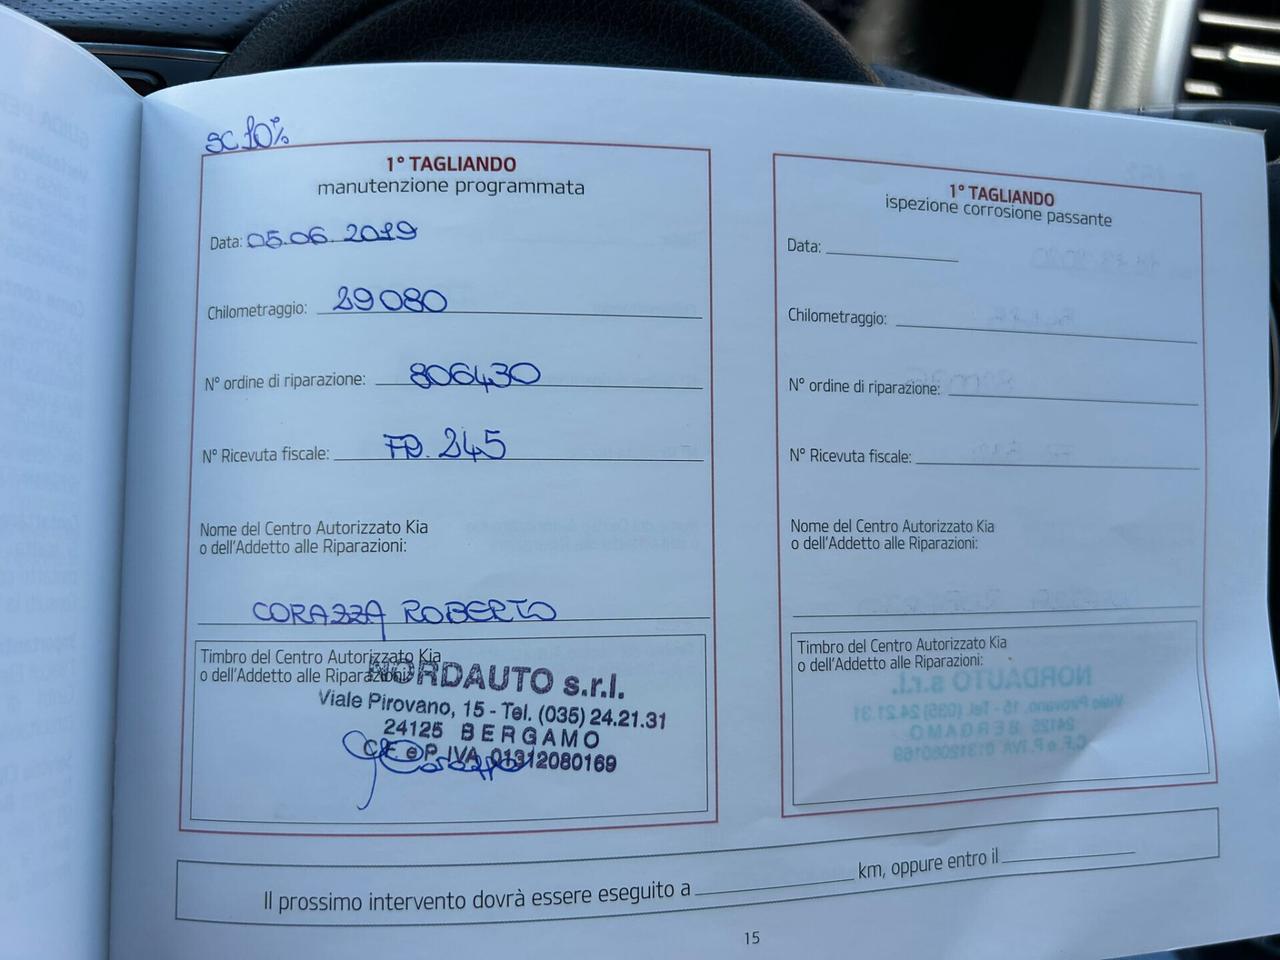 SC 10%
1° TAGLIANDO
manutenzione programmata
Data: 05.06.2019
Chilometraggio: 29080
N° ordine di riparazione: 806430
N° Ricevuta fiscale: FD. 245
Nome del Centro Autorizzato Kia
o dell'Addetto alle Riparazioni:
CORAZZA ROBERTO
Timbro del Centro Autorizzato Kia
o dell'Addetto alle Riparazioni:
NORDAUTO s.r.l.
Viale Pirovano, 15 - Tel. (035) 24.21.31
24125 BERGAMO
C.F. e P. IVA 01312080169
1° TAGLIANDO
ispezione corrosione passante
Data:
Chilometraggio:
N° ordine di riparazione:
N° Ricevuta fiscale:
Nome del Centro Autorizzato Kia
o dell'Addetto alle Riparazioni:
Timbro del Centro Autorizzato Kia
o dell'Addetto alle Riparazioni:
Il prossimo intervento dovrà essere eseguito a km, oppure entro il
15